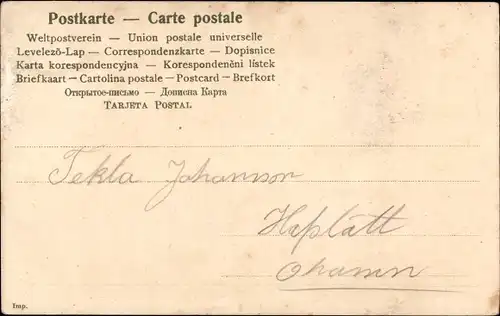 Postkarte — Carte postale
Weltpostverein — Union postale universelle
Levelező-Lap — Correspondenzkarte — Dopisnice
Karta korespondencyjna — Korespondenční lístek
Briefkaart — Cartolina postale — Postcard — Brefkort
Открытое-письмо — Дописна Карта
TARJETA POSTAL
Tekla Johanson
Imp.